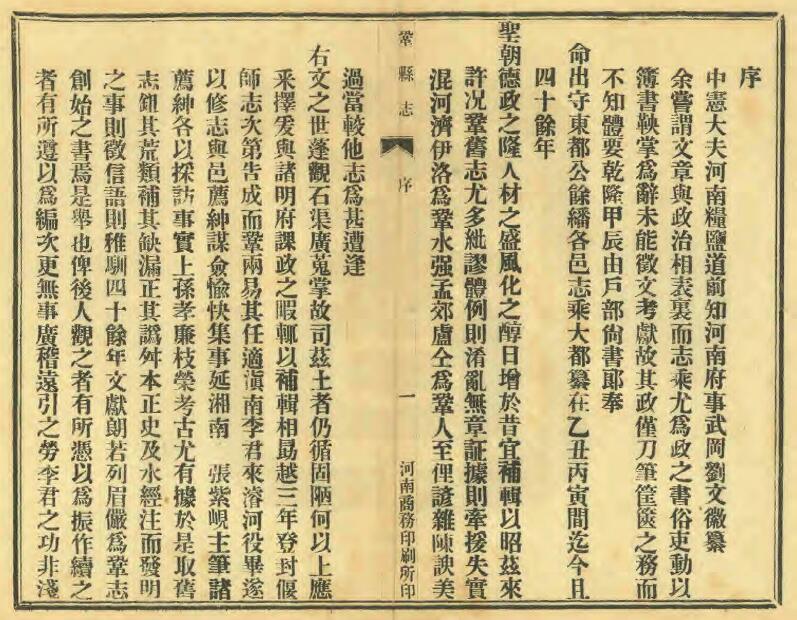 序
中憲大夫河南糧鹽道前知河南府事武岡劉文徽纂
余嘗謂文章與政治相表裏而志乘尤爲政之書俗吏動以
簿書鞅掌爲辭未能徵文考獻故其政僅刀筆筐篋之務而
不知體要乾隆甲辰由戶部尙書郞奉
命出守東都公餘繙各邑志乘大都纂在乙丑丙寅間迄今且
四十餘年
聖朝德政之隆人材之盛風化之醇日增於昔宜補輯以昭茲來
許况鞏舊志尤多紕謬體例則淆亂無章証據則牽援失實
混河濟伊洛爲鞏水强孟郊盧仝爲鞏人至俚諺雜陳諛美
鞏縣志
序
一
河南商務印刷所印
過當較他志爲甚遭逢
右文之世蓬觀石渠廣蒐掌故司茲土者仍循固陋何以上應
釆擇爰與諸明府課政之暇輒以補輯相勗越三年登封偃
師志次第告成而鞏兩易其任適滇南李君來濬河役畢遂
以修志與邑薦紳謀僉愉快集事延湘南 張紫峴主筆諸
薦紳各以探訪事實上孫孝廉枝榮考古尤有據於是取舊
志鈕其荒類補其缺漏正其譌舛本正史及水經注而發明
之事則徵信語則雅馴四十餘年文獻朗若列眉儼爲鞏志
創始之書焉是舉也俾後人觀之者有所憑以爲振作續之
者有所遵以爲編次更無事廣稽遠引之勞李君之功非淺